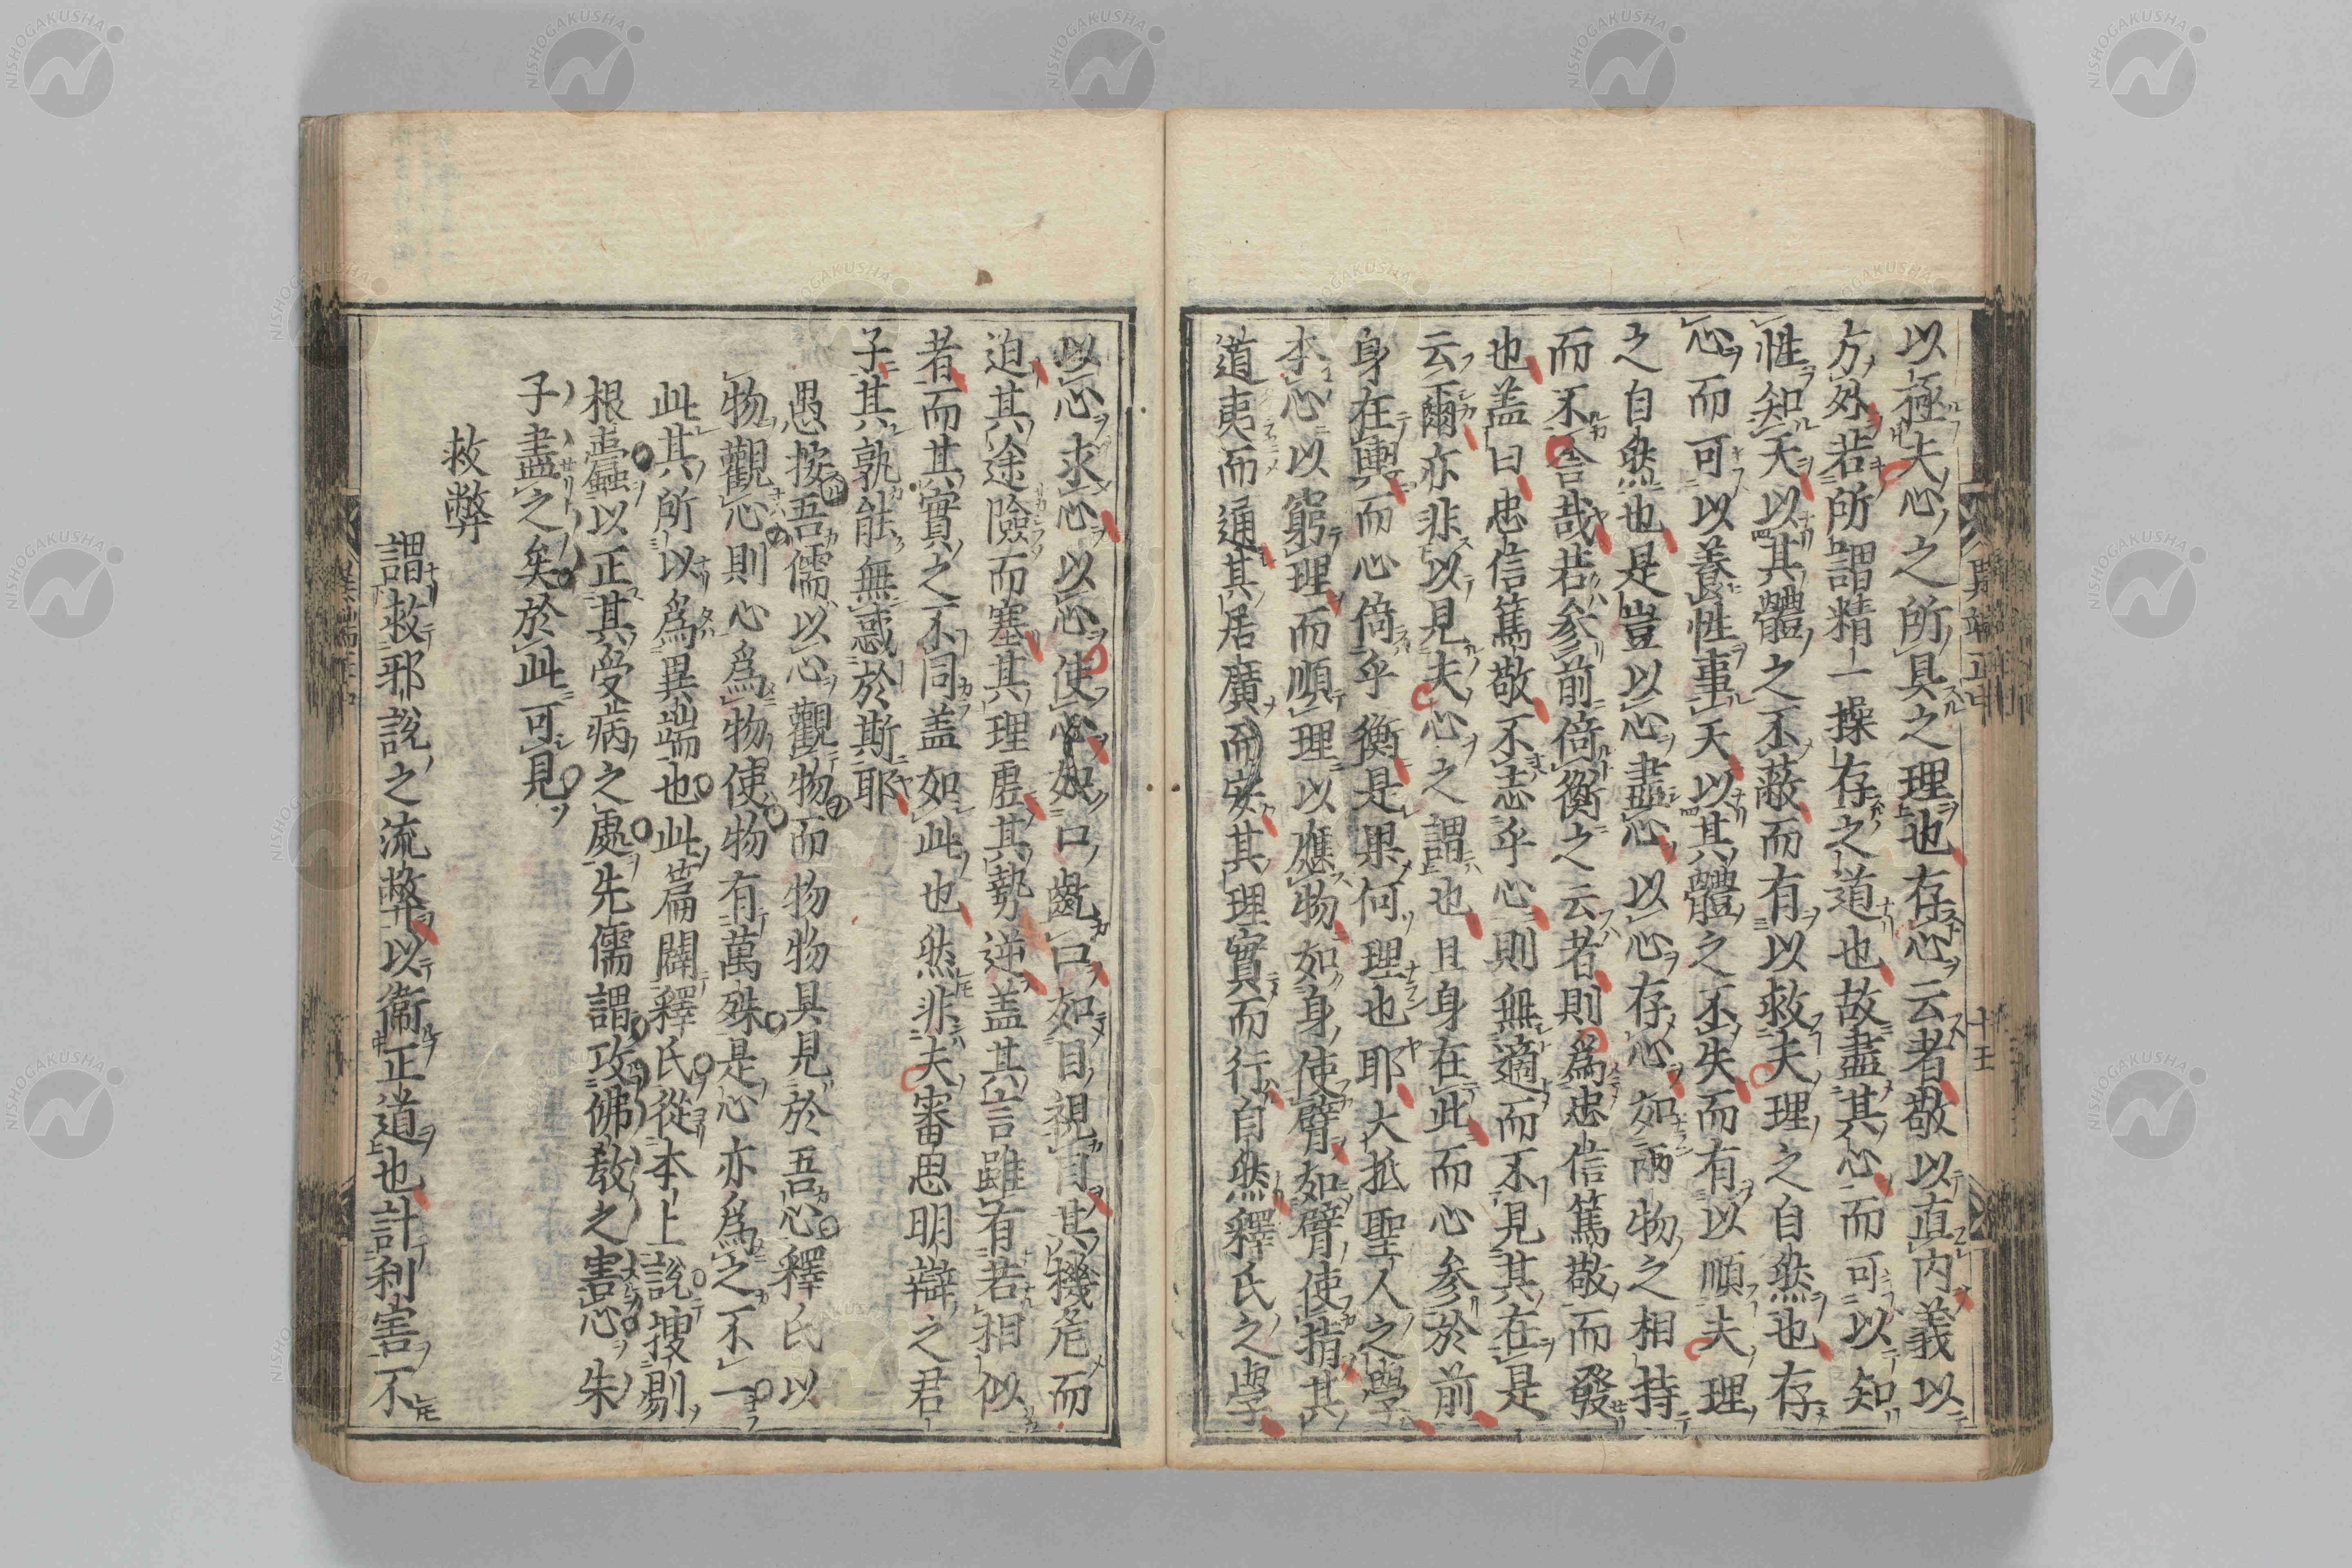 以極夫心之所具之理也存心云者敬以直内義以
方外若所謂精一操存之道也故盡其心而可以知
性知天以其體之不蔽而有以救夫理之自然也存
心而可以養性事天以其體之不失而有以順夫理
之自然也是豈以心盡心以心存心如兩物之相持
而不舎哉若参前倚衡之云者則爲忠信篤敬而發
也盖曰忠信篤敬不忘乎心則無適而不見其在是
云爾亦非以見夫心之謂也且身在此而心参於前
身在輿而心倚乎衡是果何理也耶大抵聖人之學
本心以窮理而順理以應物如身使臂如臂使指其
道夷而通其居廣而安其理實而行自然釋氏之學
以心求心以心使心如口齕口如目視目其機危而
迫其途險而塞其理虛其勢逆盖其言雖有若相似
者而其實之不同盖如此也然非夫審思明辯之君
子其孰能無惑於斯耶
愚按吾儒以心觀物而物物具見於吾心釋氏以
物觀心則心爲物使物有萬殊是心亦爲之不一
此其所以爲異端也此篇闢釋氏從本上說搜剔
根蠹以正其受病之處先儒謂攻佛敎之害心朱
子盡之矣於此可見
救弊
謂救邪說之流弊以衞正道也計利害不